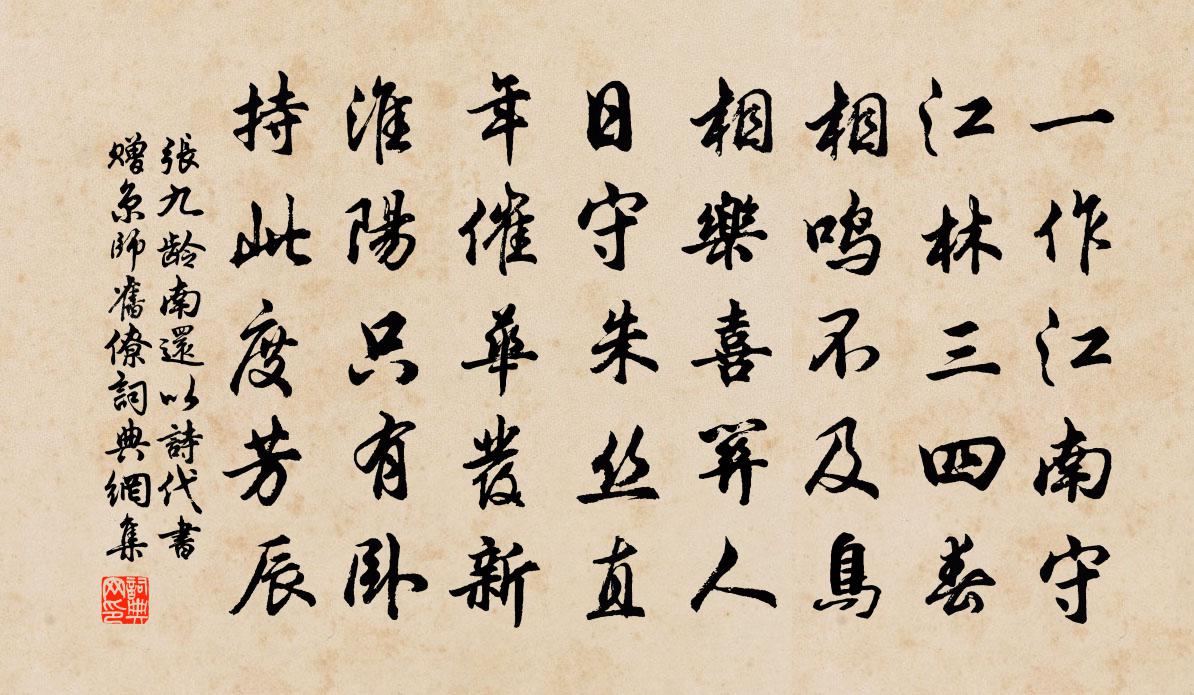 一作江南守
江林三四春
相鳴不及鳥
相樂喜關人
日守朱丝直
年催華發新
淮陽只有卧
持此度芳辰
張九龄南還以詩代書
贈京師舊僚詞典網集
詞典
网印